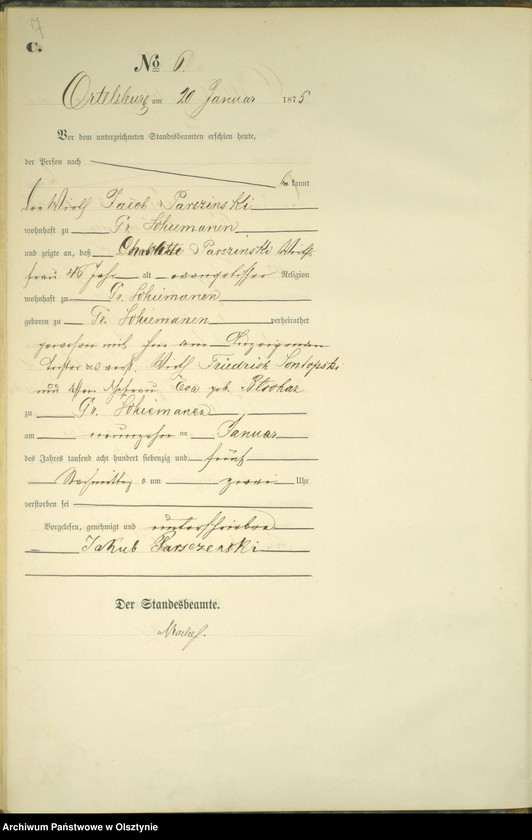 7
C.
No 6.
Ortelsburg am 20 Januar 1875
Vor dem unterzeichneten Standesbeamten erschien heute,
der Person nach kannt
der Wirth Jacob Parezinski
wohnhaft zu Gr. Schiemanen
und zeigte an, daß Charlotte Parezinski Wirths
frau 46 Jahr alt evangelischer Religion
wohnhaft zu Gr. Schiemanen
geboren zu Gr. Schiemanen verheirathet
gewesen mit
Tochter des verst. Wirth Friedrich Sontopski
und Ehefrau Eva geb.
zu Gr. Schiemanen
am neunzehn ten Januar
des Jahres tausend acht hundert siebenzig und fünf
Nachmittag s um zwei Uhr
verstorben sei
Vorgelesen, genehmigt und unterschrieben
Jakub Parsczenski
Der Standesbeamte.
Archiwum Państwowe w Olsztynie